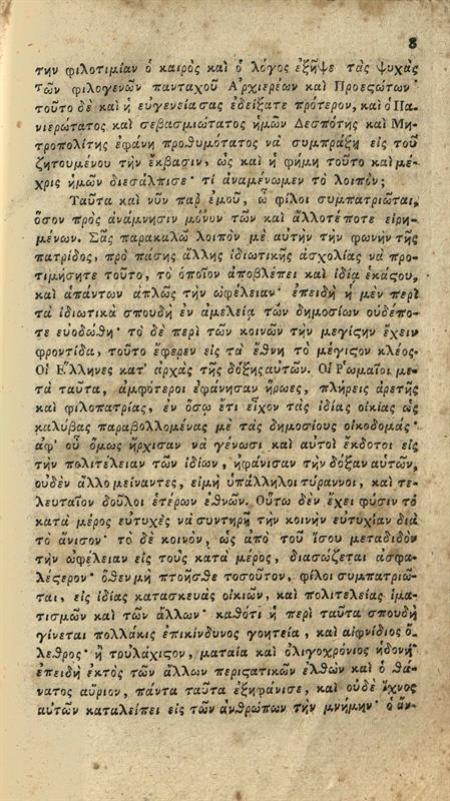 8
την φιλοτιμίαν ὁ καιρὸς καὶ ὁ λόγος ἐξῆψε τὰς ψυχὰς
τῶν φιλογενῶν πανταχοῦ Αρχιερέων καὶ Προεϛώτων·
τοῦτο δὲ καὶ ἡ ευγενεία σας ἐδείξατε πρότερον, καὶ ὁ Πα-
νιερώτατος καὶ σεβασμιώτατος ἡμῶν Δεσπότης καὶ Μη-
τροπολίτης ἐφάνη προθυμότατος νὰ συμπράξῃ εἰς τοῦ
ζητουμένου τὴν ἔκβασιν, ὡς καὶ ἡ φήμη τοῦτο καὶ μέ-
χρις ἡμῶν διεσάλπισε· τί ἀναμένωμεν τὸ λοιπόν;
Ταῦτα καὶ νῦν παρ' ἐμοῦ, ὦ φίλοι συμπατριῶται,
ὅσον πρὸς ἀνάμνησιν μόνον τῶν καὶ ἄλλοτέ ποτε εἰρη-
μένων. Σᾶς παρακαλῶ λοιπὸν μὲ αὐτὴν τὴν φωνὴν τῆς
πατρίδος, πρὸ πάσης ἄλλης ἰδιωτικῆς ἀσχολίας νὰ προ-
τιμήσητε τοῦτο, τὸ ὁποῖον ἀποβλέπει καὶ ἰδίᾳ ἑκάϛου,
καὶ ἁπάντων ἁπλῶς τὴν ὠφέλειαν· ἐπειδὴ ἡ μὲν περὶ
τὰ ἰδιωτικὰ σπουδὴ ἐν ἀμελείᾳ τῶν δημοσίων οὐδέπο-
τε εὐοδώθη· τὸ δὲ περὶ τῶν κοινῶν τὴν μεγίϛην ἔχειν
φροντίδα, τοῦτο ἔφερεν εἰς τὰ ἔθνη τὸ μέγιϛον κλέος.
Οἱ Ἕλληνες κατ' ἀρχὰς τῆς δόξης αὐτῶν. Οἱ Ρωμαῖοι με-
τὰ ταῦτα, ἀμφότεροι ἐφάνησαν ἥρωες, πλήρεις ἀρετῆς
καὶ φιλοπατρίας, ἐν ὅσῳ ἔτι εἶχον τὰς ἰδίας οἰκίας ὡς
καλύβας παραβολλομένας μὲ τὰς δημοσίους οἰκοδομάς·
ἀφ' οὗ ὅμως ἤρχισαν νὰ γένωσι καὶ αὐτοὶ ἔκδοτοι εἰς
τὴν πολιτέλειαν τῶν ἰδίων, ἠφάνισαν τὴν δόξαν αὑτῶν,
οὐδὲν ἄλλο μείναντες, εἰμὴ ὑπάλληλοι τύραννοι, καὶ τε-
λευταῖον δοῦλοι ἑτέρων ἐθνῶν. Οὕτω δὲν ἔχει φύσιν τὸ
κατὰ μέρος εὐτυχὲς νὰ συντηρῇ τὴν κοινὴν εὐτυχίαν διὰ
τὸ ἄνισον· τὸ δὲ κοινὸν, ὡς ἀπὸ τοῦ ἴσου μεταδιδὸν
τὴν ὠφέλειαν εἰς τοὺς κατὰ μέρος, διασώζεται ἀσφα-
λέϛερον· ὅθεν μὴ πτοῆσθε τοσοῦτον, φίλοι συμπατριῶ-
ται, εἰς ἰδίας κατασκευὰς οἰκιῶν, καὶ πολιτελείας ἱμα-
τισμῶν καὶ τῶν ἄλλων· καθότι ἡ περὶ ταῦτα σπουδὴ
γίνεται πολλάκις ἐπικίνδυνος γοητεία, καὶ αἰφνίδιος ὄ-
λεθρος· ἢ τοὐλάχιϛον, ματαία καὶ ὀλιγοχρόνιος ἡδονή·
ἐπειδὴ ἐκτὸς τῶν ἄλλων περιϛατικῶν ἐλθὼν καὶ ὁ θά-
νατος αὔριον, πάντα ταῦτα ἐξηφάνισε, καὶ οὐδὲ ἴχνος
αὐτῶν καταλείπει εἰς τῶν ἀνθρώπων τὴν μνήμην· ὁ ἄν-